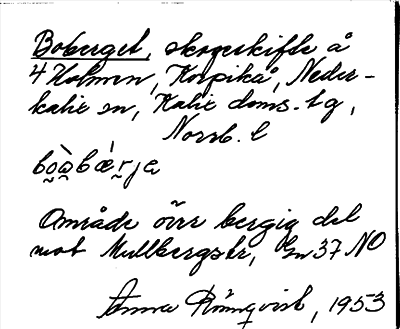 Boberget, skogsskifte å
4 Holmen, Korpikå, Neder-
kalix sn, Kalix doms. tg,
Norrb. l
Område övre bergig del
mot Mullbergstr, Gn 37 NO
Anna Rönnqvist, 1953